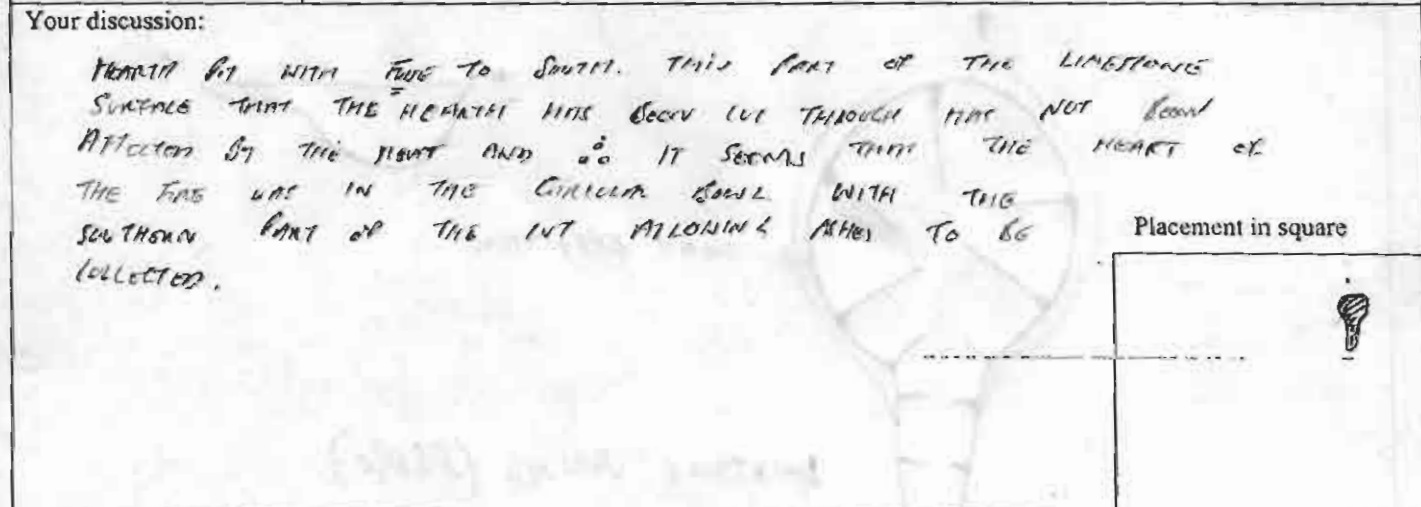 Your discussion:
HEARTH PIT WITH FLUE TO SOUTH. THIS PART OF THE LIMESTONE
SURFACE THAT THE HEARTH HAS BEEN CUT THROUGH HAS NOT BEEN
AFFECTED BY THE HEAT AND ∴ IT SEEMS THAT THE HEART OF
THE FIRE WAS IN THE CIRCULAR BOWL WITH THE
SOUTHERN PART OF THE CUT ALLOWING ASHES TO BE
COLLECTED.
Placement in square